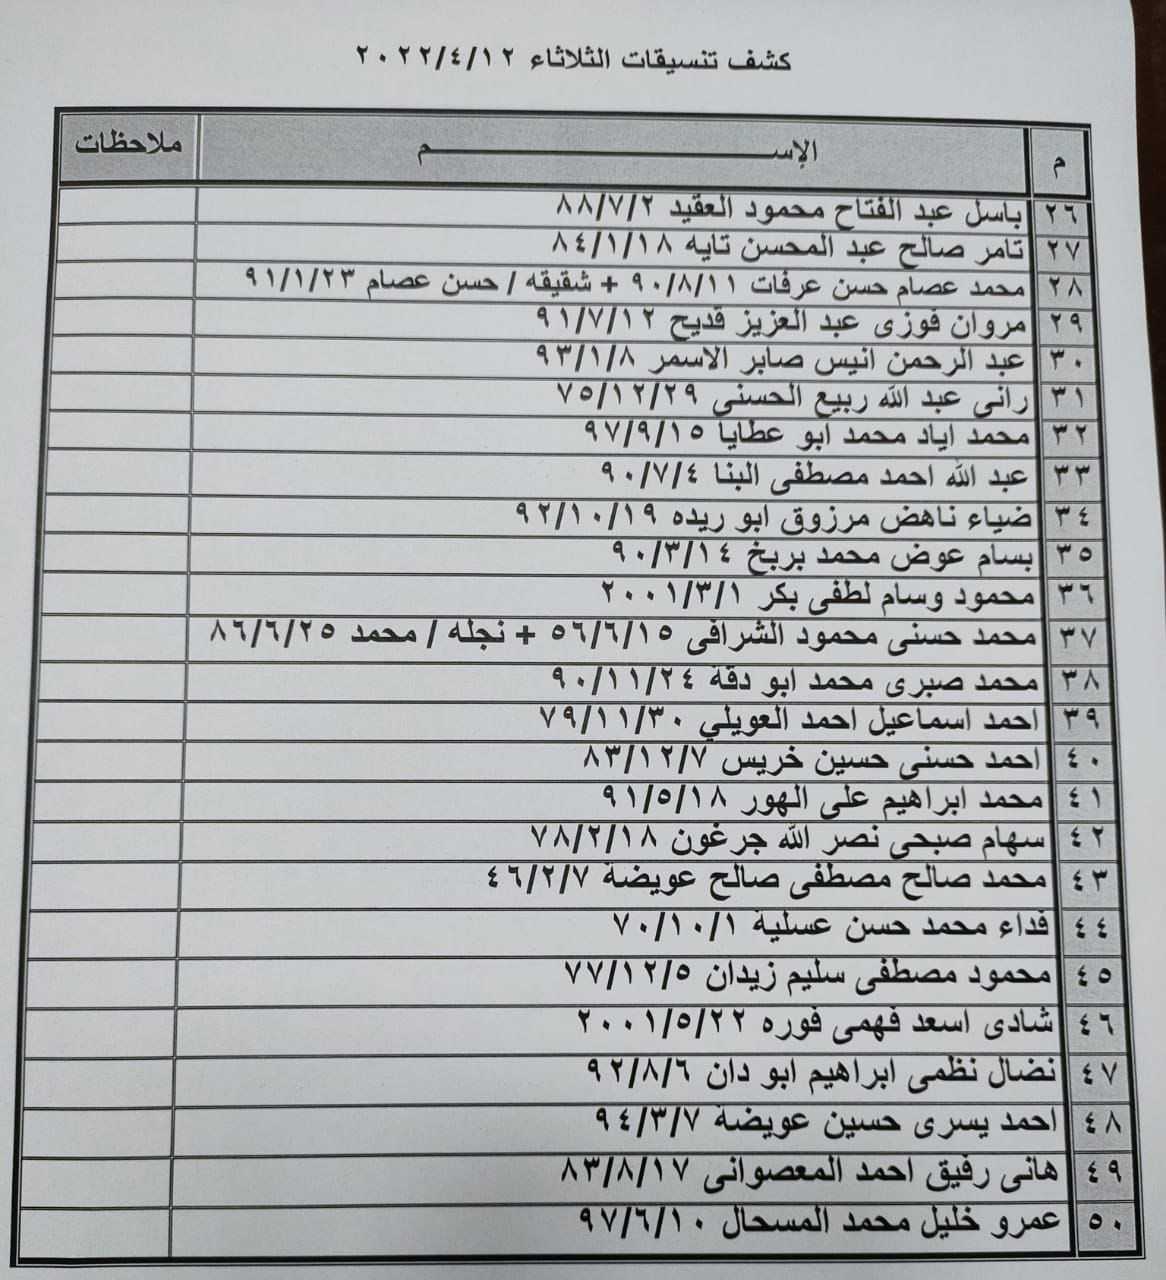 كشف تنسيقات الثلاثاء ٢٠٢٢/٤/١٢
م الإســـم ملاحظات
٢٦ باسل عبد الفتاح محمود العقيد ٨٨/٧/٢
٢٧ تامر صالح عبد المحسن تايه ٨٤/١/١٨
٢٨ محمد عصام حسن عرفات ٩٠/٨/١١ + شقيقه / حسن عصام ٩١/١/٢٣
٢٩ مروان فوزى عبد العزيز قديح ٩١/٧/١٢
٣٠ عبد الرحمن انيس صابر الاسمر ٩٣/١/٨
٣١ رانى عبد الله ربيع الحسنى ٧٥/١٢/٢٩
٣٢ محمد اياد محمد ابو عطايا ٩٧/٩/١٥
٣٣ عبد الله احمد مصطفى البنا ٩٠/٧/٤
٣٤ ضياء ناهض مرزوق ابو ريده ٩٢/١٠/١٩
٣٥ بسام عوض محمد بربخ ٩٠/٣/١٤
٣٦ محمود وسام لطفى بكر ٢٠٠١/٣/١
٣٧ محمد حسنى محمود الشرافى ٥٦/٦/١٥ + نجله / محمد ٨٦/٦/٢٥
٣٨ محمد صبرى محمد ابو دقة ٩٠/١١/٢٤
٣٩ احمد اسماعيل احمد العويلي ٧٩/١١/٣٠
٤٠ احمد حسنى حسين خريس ٨٣/١٢/٧
٤١ محمد ابراهيم على الهور ٩١/٥/١٨
٤٢ سهام صبحى نصر الله جرغون ٧٨/٢/١٨
٤٣ محمد صالح مصطفى صالح عويضة ٤٦/٢/٧
٤٤ فداء محمد حسن عسلية ٧٠/١٠/١
٤٥ محمود مصطفى سليم زيدان ٧٧/١٢/٥
٤٦ شادى اسعد فهمى فوره ٢٠٠١/٥/٢٢
٤٧ نضال نظمى ابراهيم ابو دان ٩٢/٨/٦
٤٨ احمد يسرى حسين عويضة ٩٤/٣/٧
٤٩ هانى رفيق احمد المعصوانى ٨٣/٨/١٧
٥٠ عمرو خليل محمد المسحال ٩٧/٦/١٠